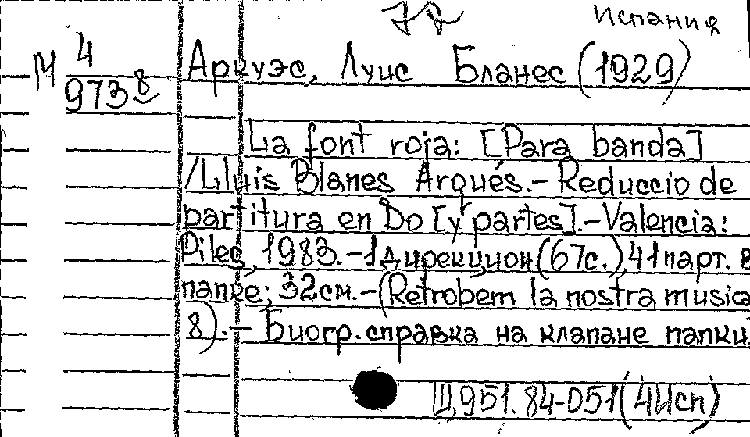 77 Испания
М 4
9738
Аркуэс, Луис Бланес (1929)
La font roja: [Para banda]
/Lluis Blanes Arqués.- Reduccio de
partitura en Do [y partes].-Valencia:
Piles, 1983.-1дирекцион(67с.),41парт. в
папке; 32см.-(Retrobem la nostra musica
8).- Биогр.справка на клапане папки.
Щ951.84-051(4Исп)